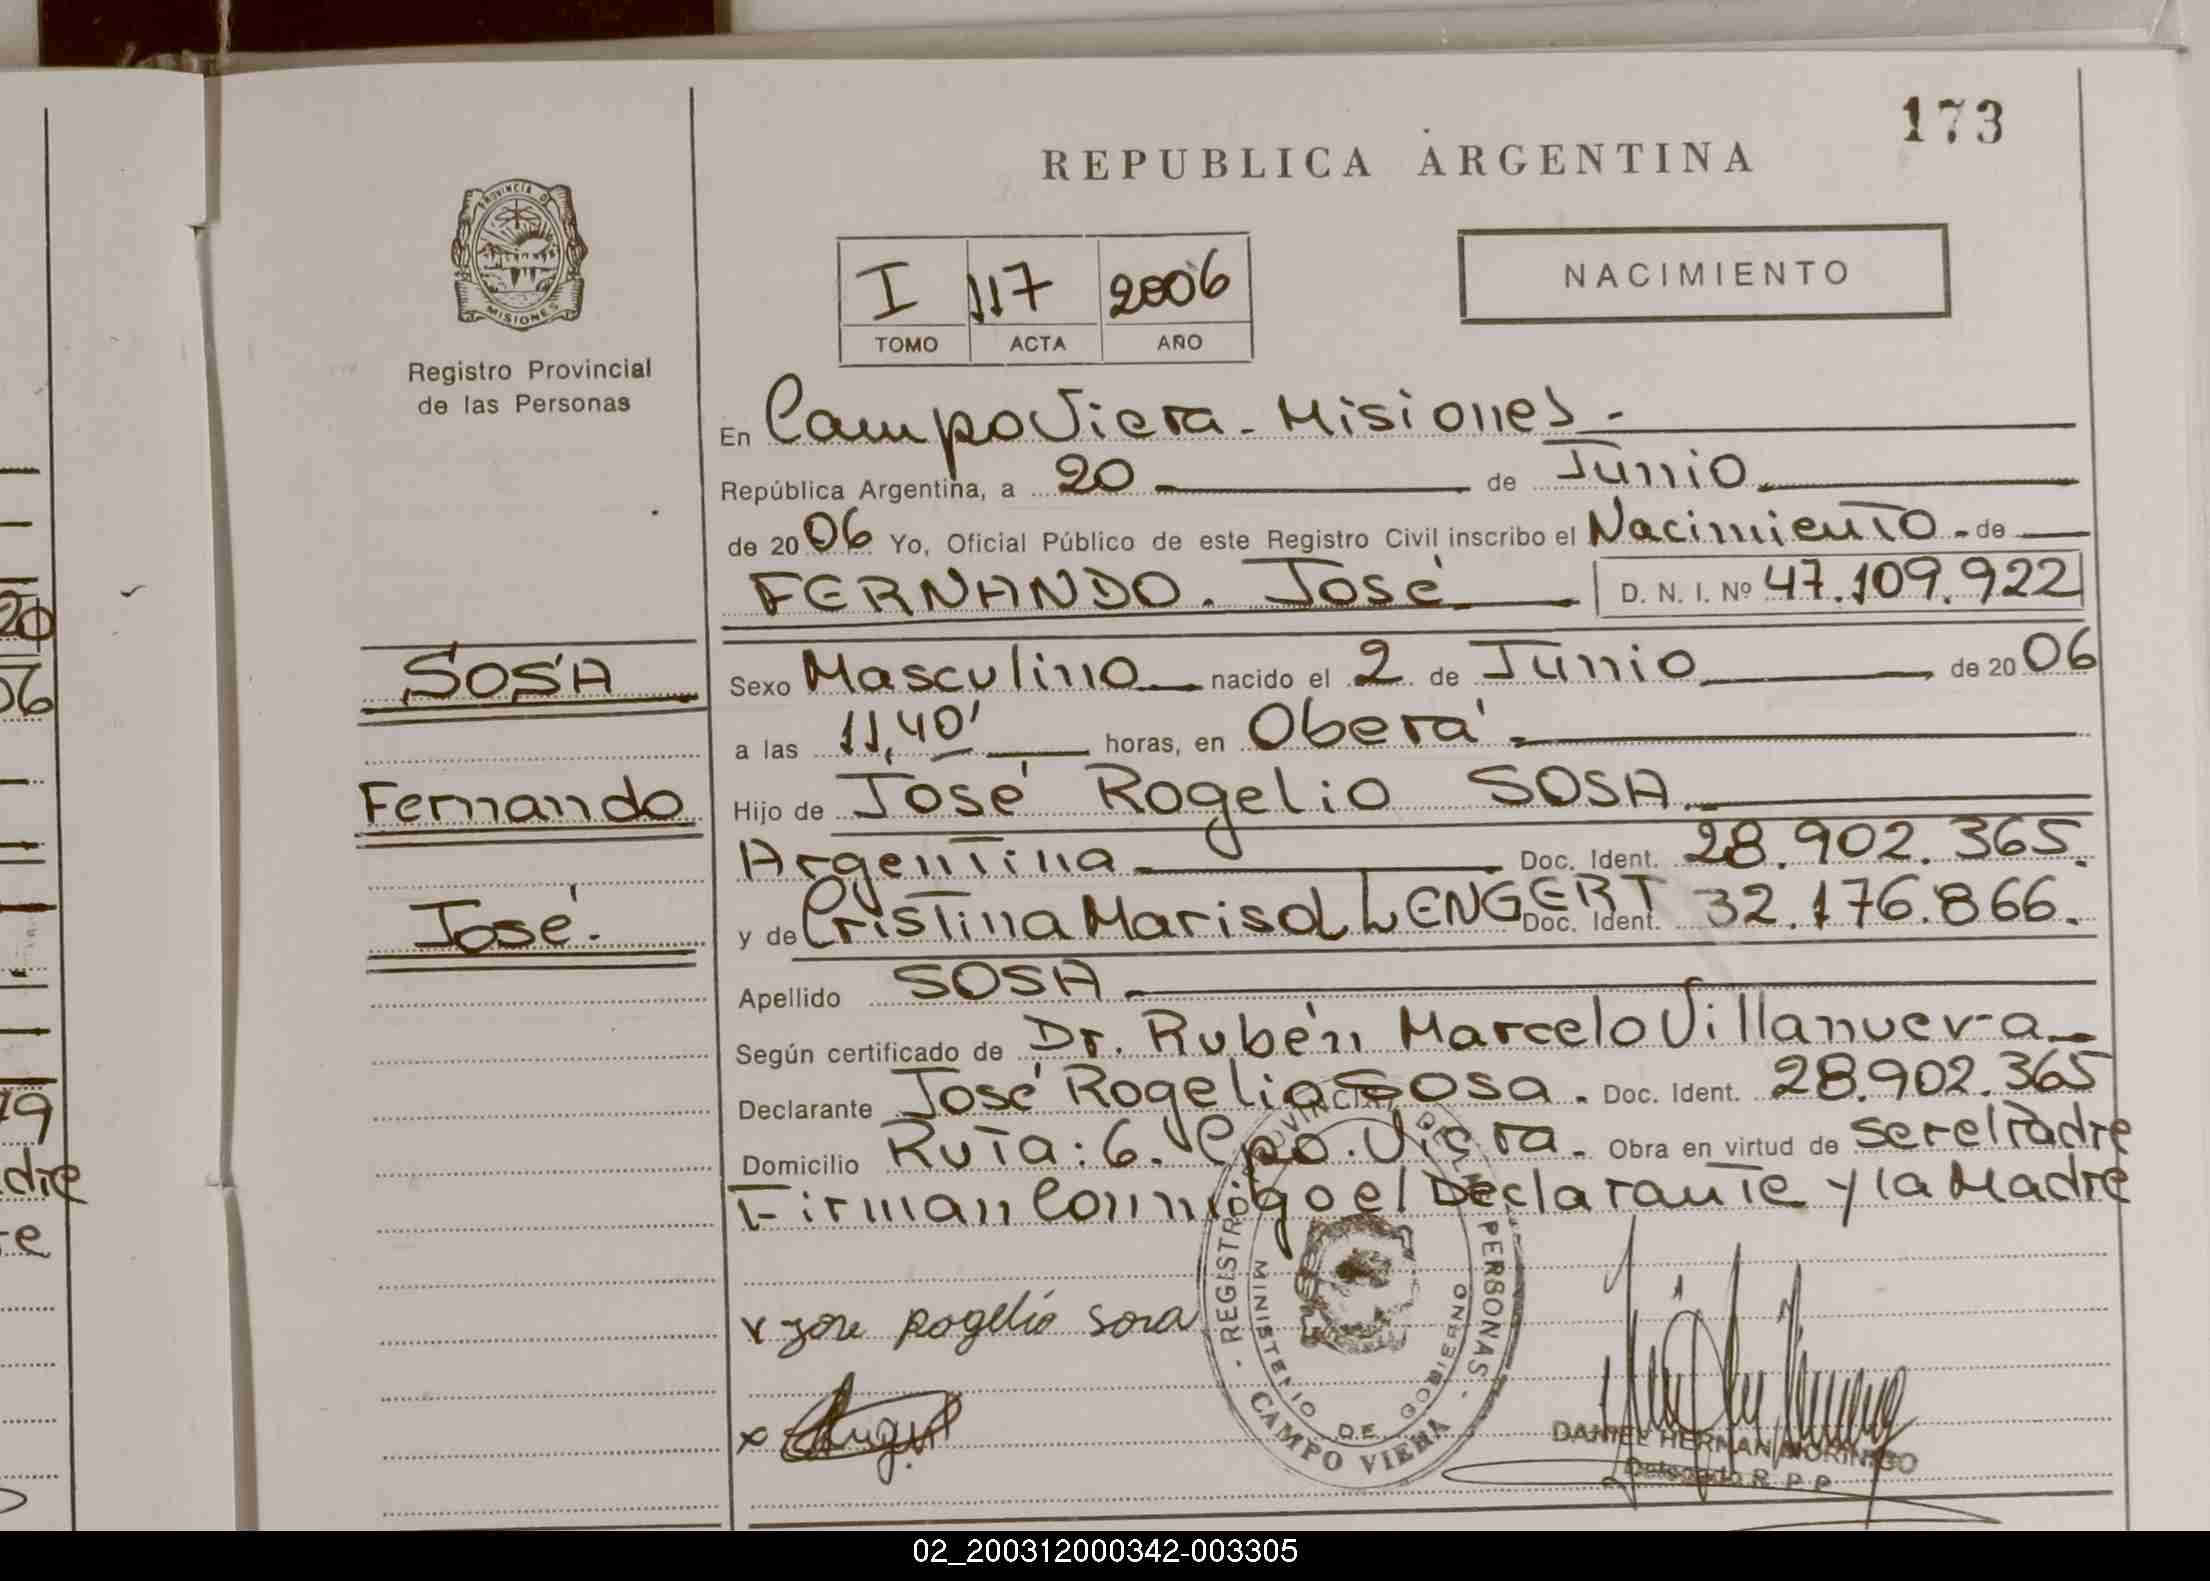 173
REPUBLICA ARGENTINA
PROVINCIA DE
MISIONES
Registro Provincial
de las Personas
I 117 2006
TOMO ACTA AÑO
NACIMIENTO
En Campo Viera - Misiones -
República Argentina, a 20 de Junio
de 2006 Yo, Oficial Público de este Registro Civil inscribo el Nacimiento - de
FERNANDO. José D. N. I. Nº 47.109.922
SOSA
Sexo Masculino nacido el 2 de Junio de 2006
a las 11,40' horas, en Oberá
Fernando
Hijo de José Rogelio SOSA
Argentina Doc. Ident. 28.902.365.
José.
y de Cristina Marisol LENGERT Doc. Ident. 32.176.866.
Apellido SOSA
Según certificado de Dr. Rubén Marcelo Villanueva
Declarante José Rogelio Sosa. Doc. Ident. 28.902.365
Domicilio Ruta: 6. Cpo. Viera. Obra en virtud de ser el Padre
Firman Conmigo el Declarante y la Madre
x jose rogelio sosa
x
REGISTRO PROVINCIAL DE LAS PERSONAS
MINISTERIO DE GOBIERNO
CAMPO VIERA
DANIEL HERNAN MORINIGO
Delegado R. P. P.
20
06
19
dre
te
02_200312000342-003305